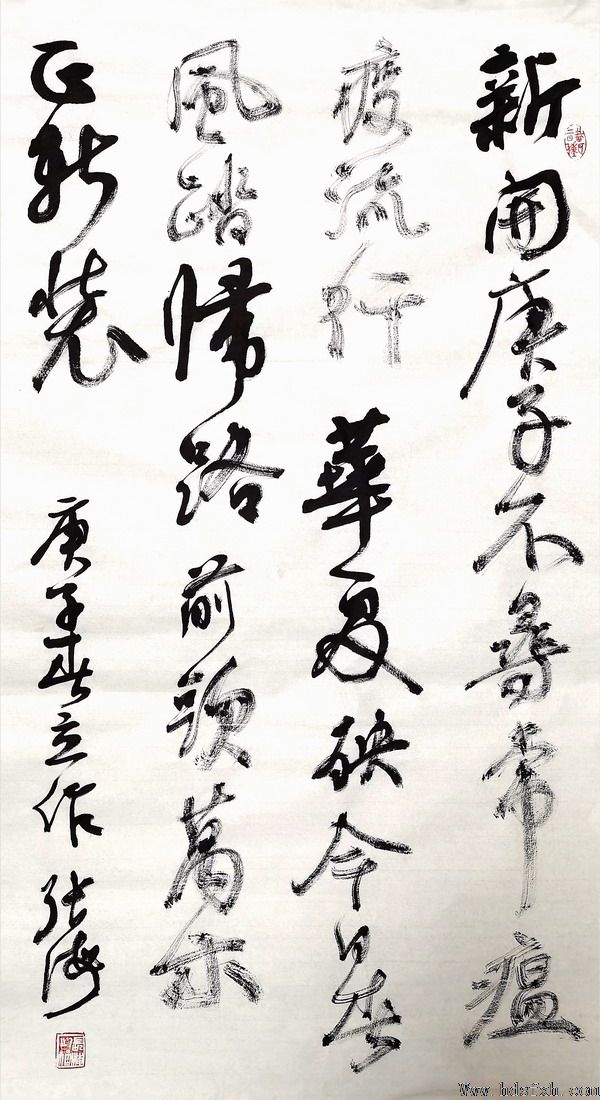 新開庚子不尋常瘟
疫流行華夏殃今日春
風踏歸路前頭萬木
正新裝
庚子春立作 張海